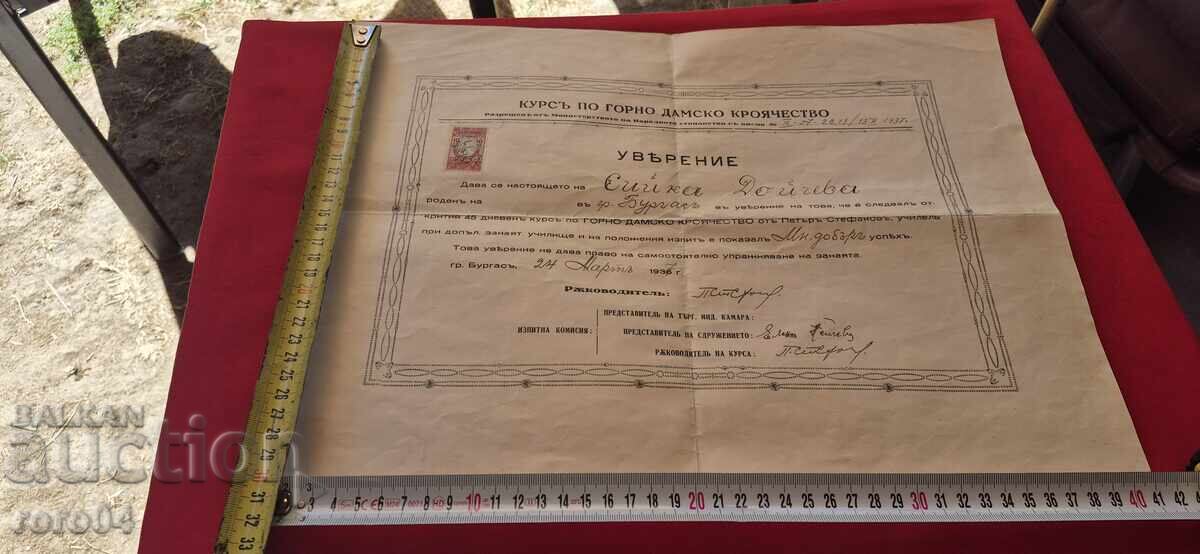 КУРСЪ ПО ГОРНО ДАМСКО КРОЯЧЕСТВО
Разрешенъ отъ Министерството на Народното стопанство съ писмо №
УВѢРЕНИЕ
Дава се настоящето на Сийка Дойчева
роденъ на въ гр. Бургасъ въ уверение на това, че е следвалъ от-
крития 45 дневенъ курсъ по ГОРНО ДАМСКО КРОЯЧЕСТВО отъ Петъръ Стефановъ, учитель
при допъл. занаят. училище и на положения изпитъ е показалъ Мн. добъръ успѣхъ.
Това уверение не дава право на самостоятелно упражняване на занаята.
гр. Бургасъ, 24 Мартъ 1937 г.
Рѫководитель:
ИЗПИТНА КОМИСИЯ:
ПРЕДСТАВИТЕЛЬ НА ТЪРГ. ИНД. КАМАРА:
ПРЕДСТАВИТЕЛЬ НА СДРУЖЕНИЕТО:
РѪКОВОДИТЕЛЬ НА КУРСА:
BALKAN
auction
roro04
17 18 19 20 21 22 23 24 25 26 27 28 29 30 31 32 33
3 4 5 6 7 8 9 10 11 12 13 14 15 16 17 18 19 20 21 22 23 24 25 26 27 28 29 30 31 32 33 34 35 36 37 38 39 40 41 42